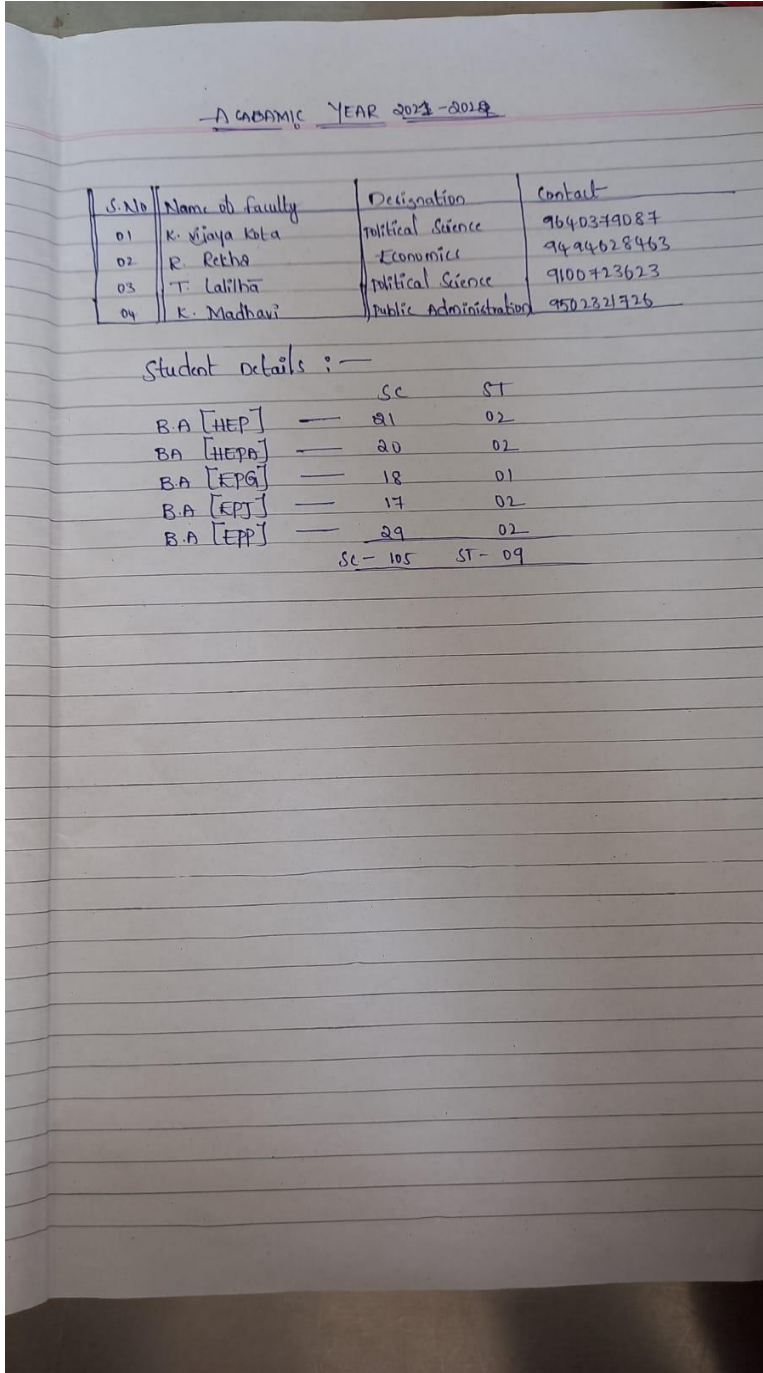 ACADAMIC YEAR 2021-2022
S.No Name of faculty Designation Contact
01 K. Vijaya Kota Political Science 9640379087
02 R. Rekha Economics 9494628463
03 T. Lalitha Political Science 9100723623
04 K. Madhavi Public Administration 9502321726
Student Details :-
SC ST
B.A [HEP] — 21 02
BA [HEPA] — 20 02
B.A [EPG] — 18 01
B.A [EPJ] — 17 02
B.A [EPP] — 29 02
SC - 105 ST - 09